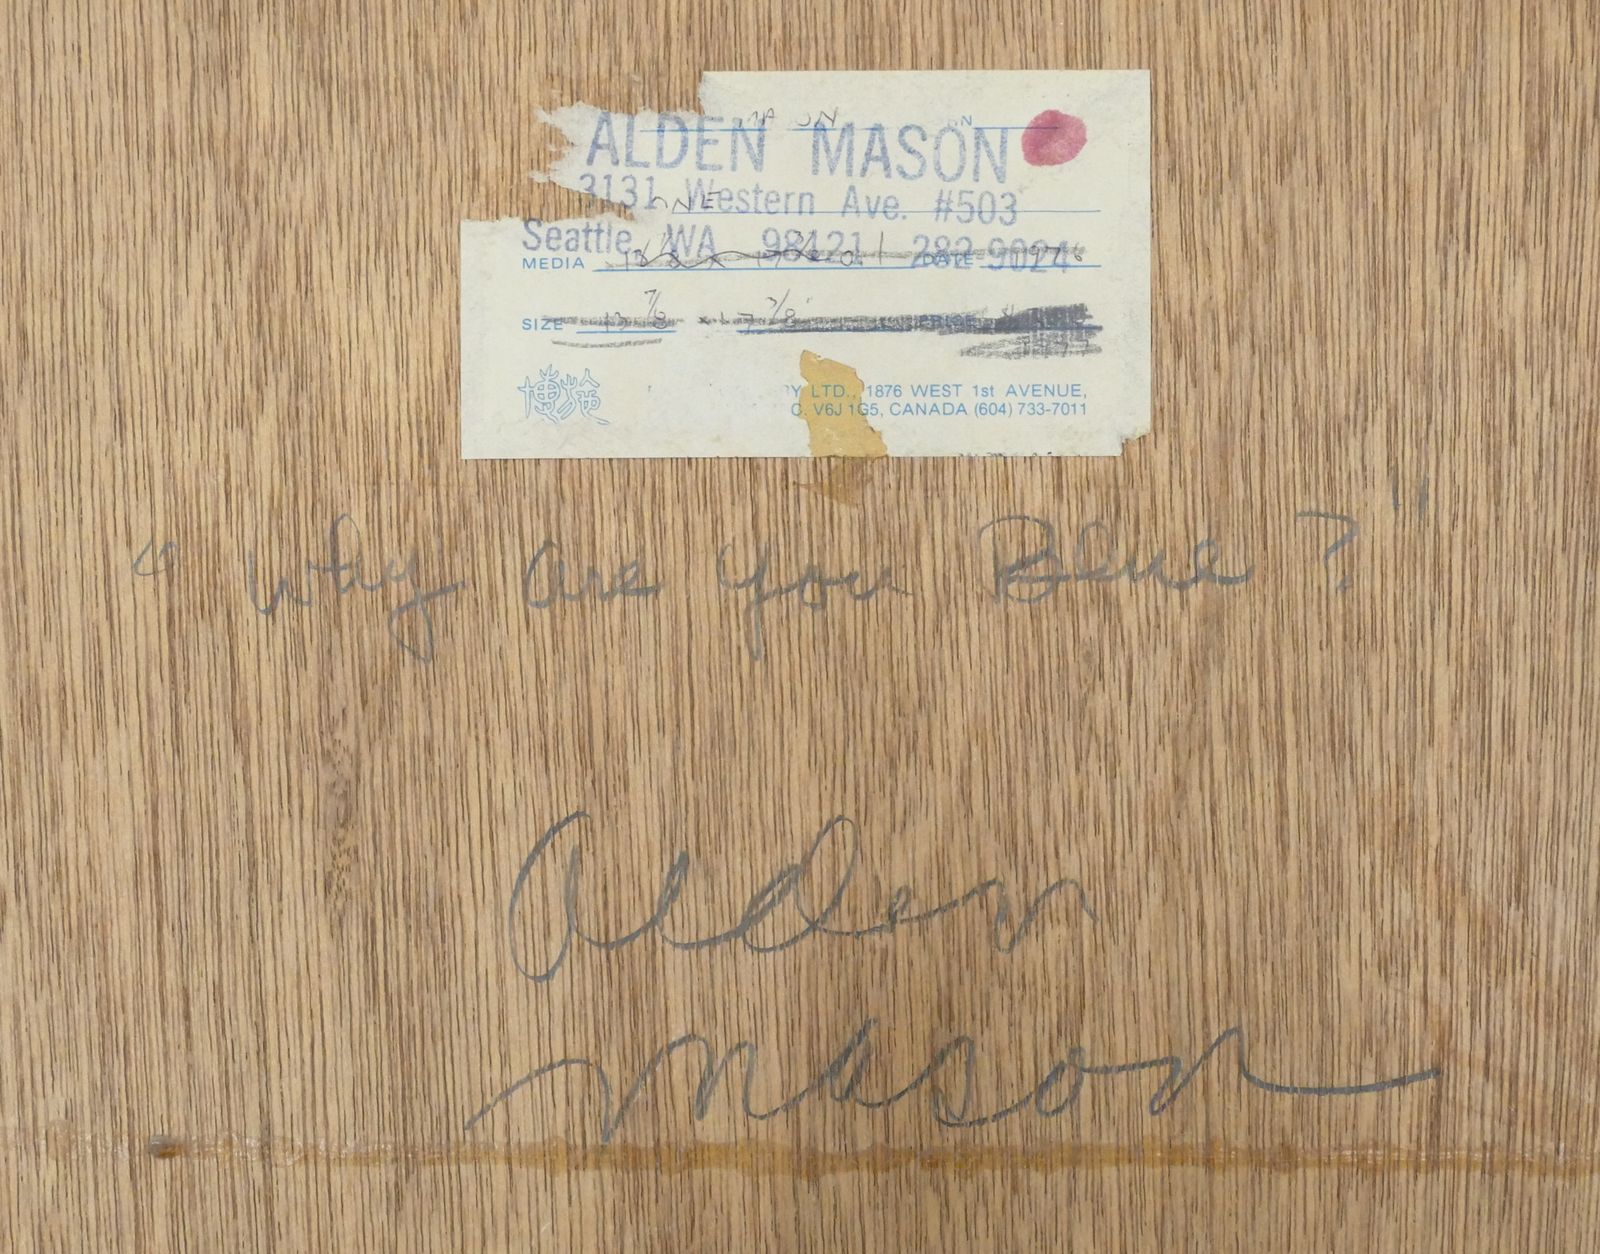 ALDEN MASON
3131 Western Ave. #503
Seattle, WA 98121 282-9024
MEDIA DATE 1976
SIZE 13 7/8 17 7/8 PRICE
博施
LTD., 1876 WEST 1st AVENUE,
C. V6J 1G5, CANADA (604) 733-7011
"Why are you Blue?"
Alden
Mason